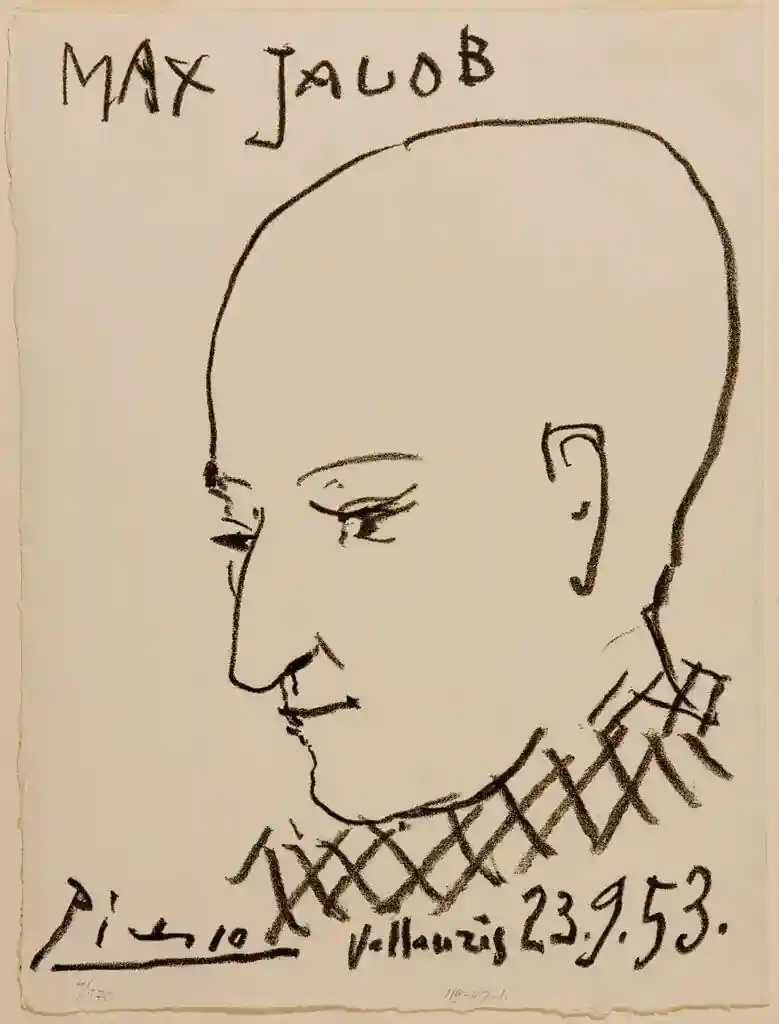 MAX JACOB
Picasso Vallauris 23.9.53.